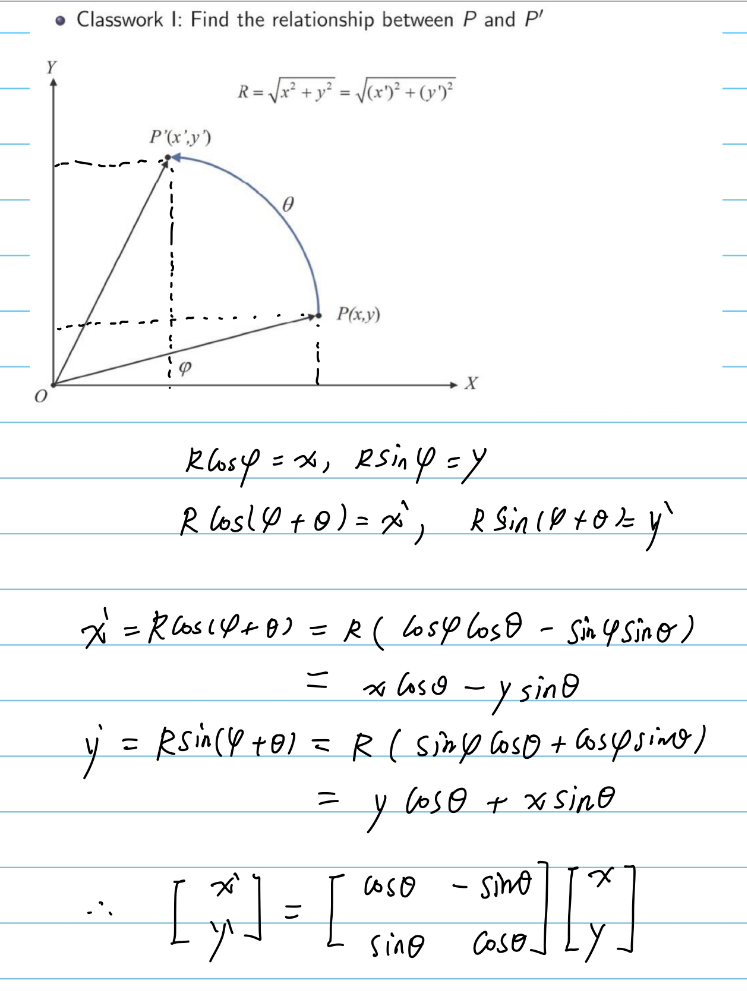 • Classwork I: Find the relationship between P and P′
Y
R = √(x² + y²) = √((x')² + (y')²)
P'(x',y')
θ
P(x,y)
φ
O
X
Rcosφ = x, Rsinφ = y
Rcos(φ + θ) = x', Rsin(φ + θ) = y'
x' = Rcos(φ + θ) = R(cosφcosθ - sinφsinθ)
= xcosθ - ysinθ
y' = Rsin(φ + θ) = R(sinφcosθ + cosφsinθ)
= ycosθ + xsinθ
∴ [x' y'] = [cosθ -sinθ sinθ cosθ] [x y]